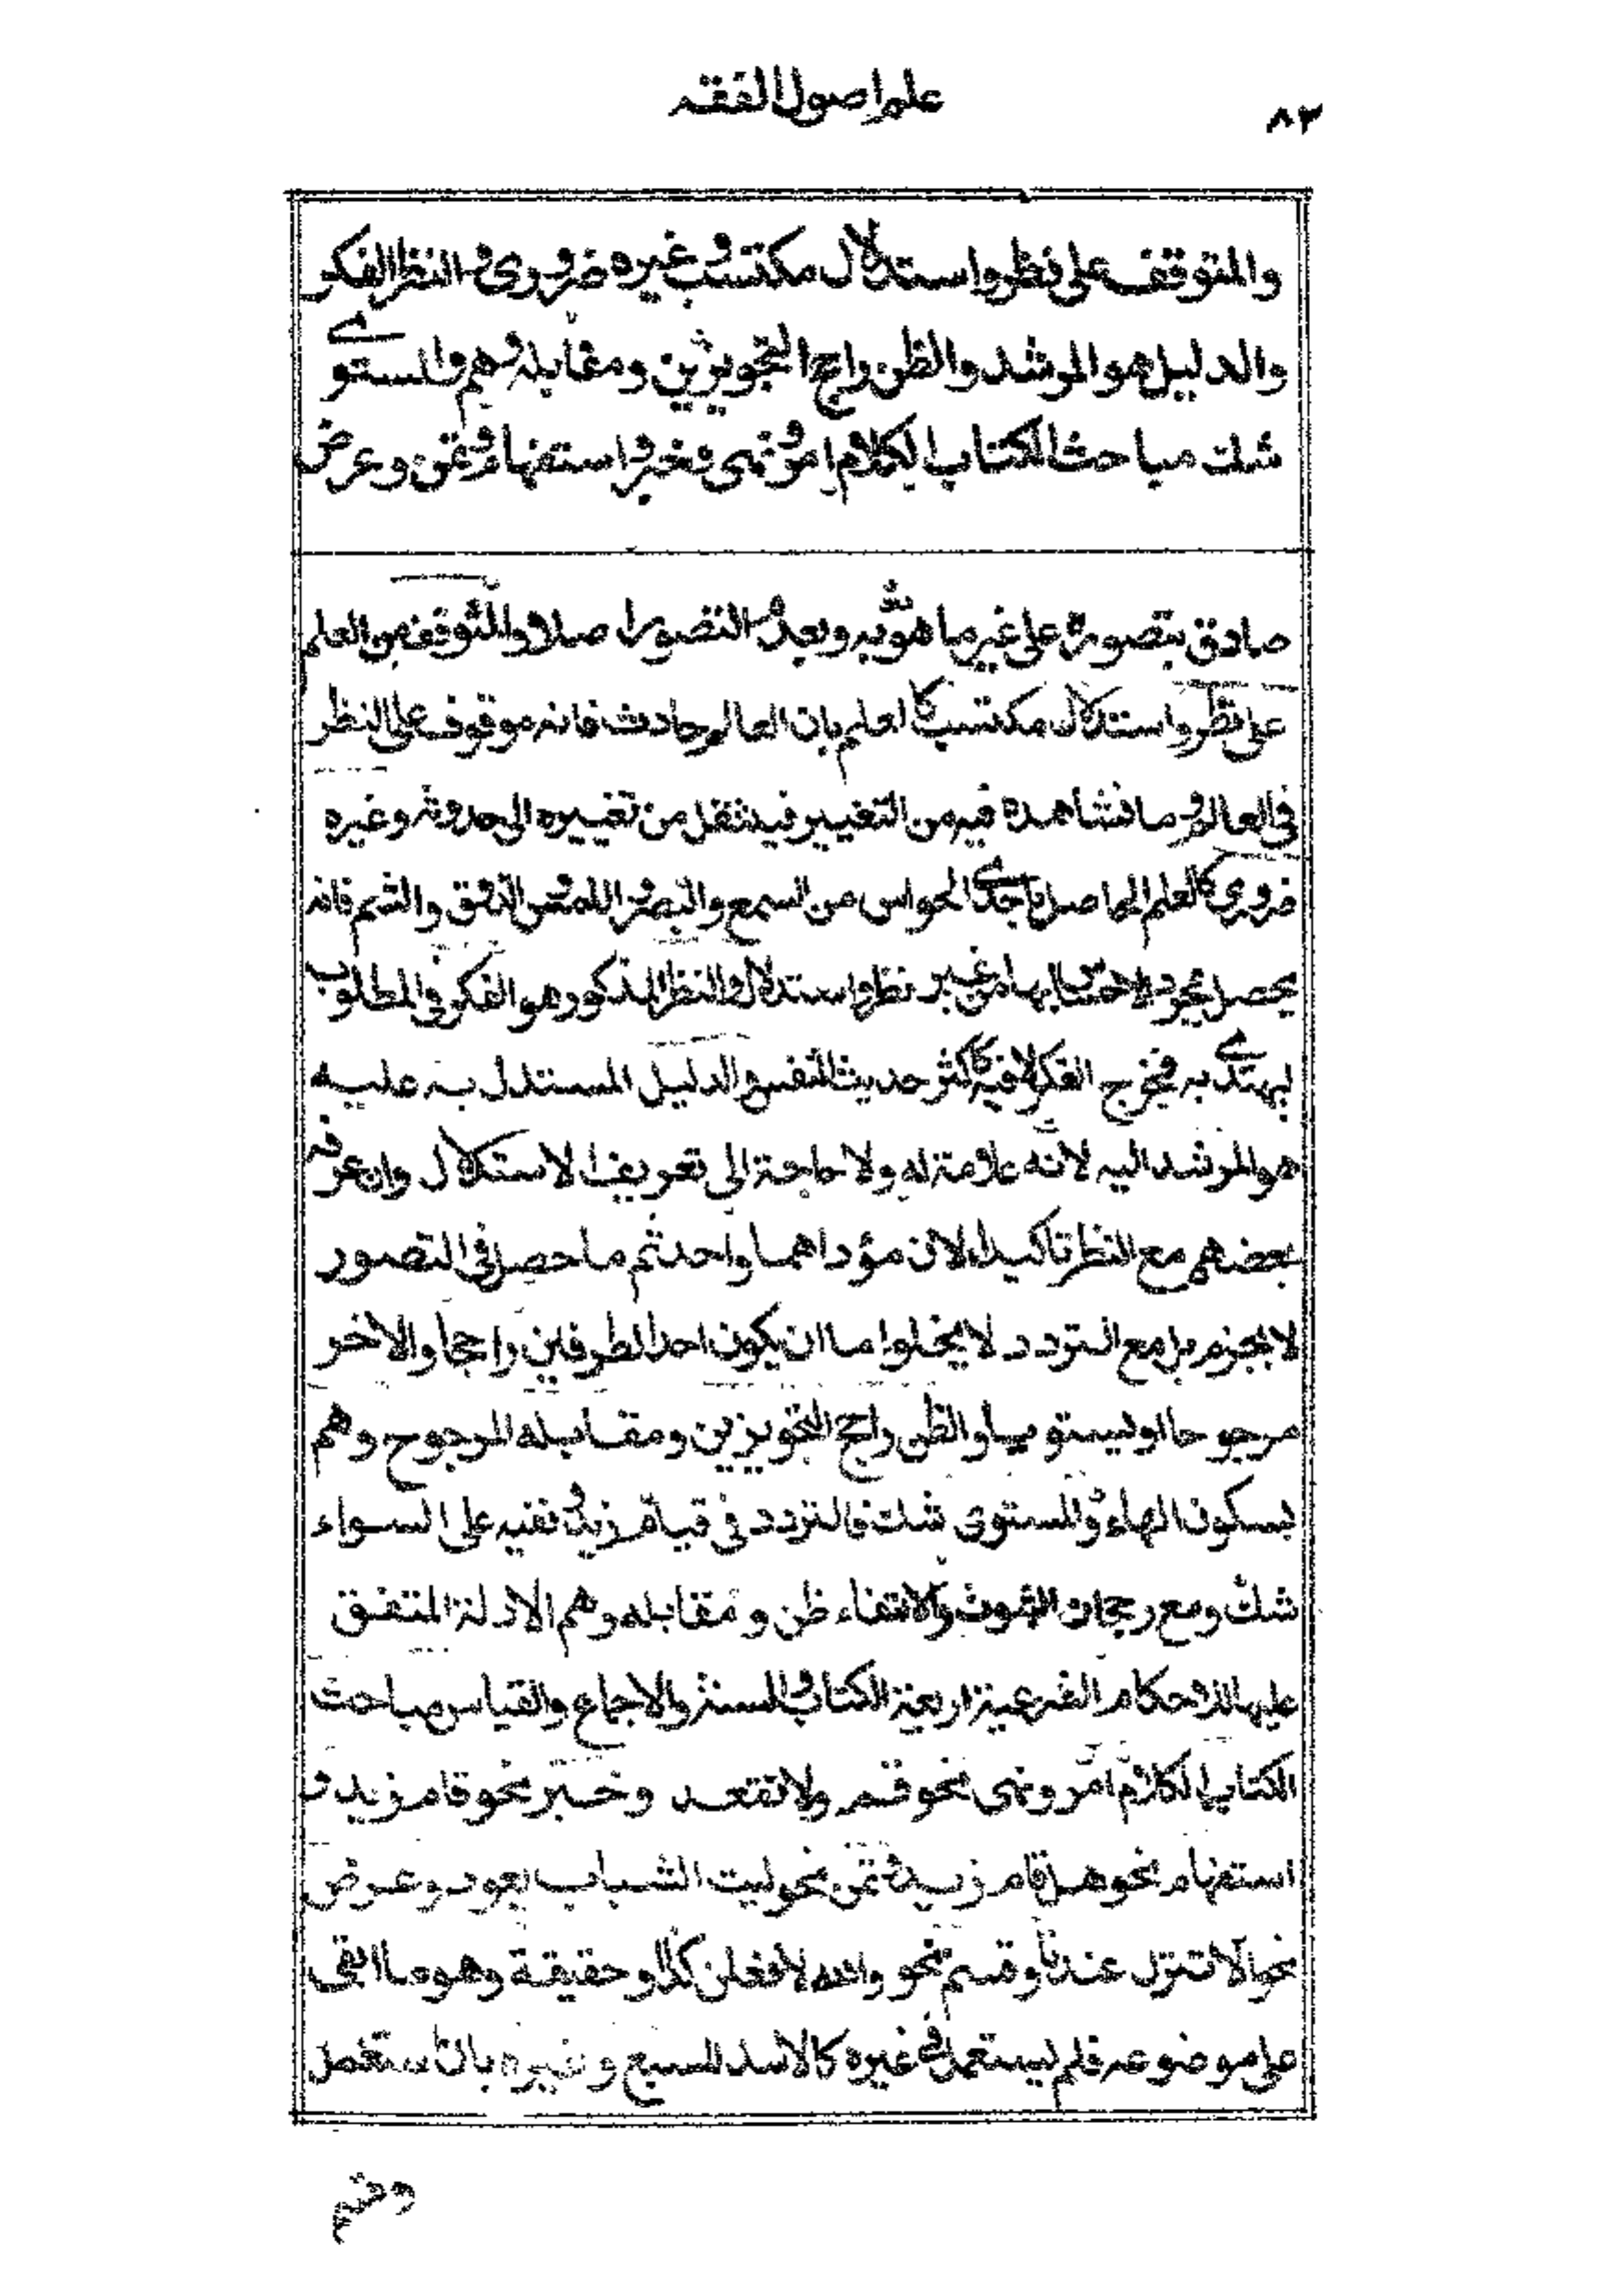 ٨٢
علم اصول الفقه
والمتوقف على نظر واستدلال مكتسب وغيره ضروري والنظر الفكر
والدليل هو المرشد والظن راجح التجويزين ومقابله وهم والمستوي
شك مباحث الكتاب الكلام امر ونهى وخبر واستفهام وتمن وعرض
صادق بتصوره على غير ما هو به وبعدم التصور اصلا والمتوقف من العلم
على نظر واستدلال مكتسب كالعلم بان العالم حادث فانه موقوف على النظر
فى العالم وما نشاهده فيه من التغيير فينتقل من تغييره الى حدوثه وغيره
ضروري كالعلم الحاصل باحدى الحواس من السمع والبصر واللمس والذوق والشم فانه
يحصل بمجرد الاحساس بها من غير نظر واستدلال والنظر المذكور هو الفكر في المطلوب
ليهتدي به فخرج الفكر لا فيه كاكثر حديث النفس والدليل المستدل به عليه
هو المرشد اليه لانه علامة له ولا حاجة الى تعريف الاستدلال وان عرفه
بعضهم مع النظر تاكيدا لان مؤداهما واحد ثم ما حصل فى التصور
لا بجزم بل مع التردد لا يخلو اما ان يكون احد الطرفين راجحا والاخر
مرجوحا او يستويا والظن راجح التجويزين ومقابله المرجوح وهم
بسكون الهاء والمستوى شك فالتردد في قيام زيد ونفيه على السواء
شك ومع رجحان الثبوت والانتفاء ظن ومقابله وهم الادلة المتفق
عليها للاحكام الشرعية اربعة الكتاب والسنة والاجماع والقياس مباحث
الكتاب الكلام امر ونهى نحو قم ولا تقعد وخبر نحو قام زيد و
استفهام نحو هل قام زيد وتمن نحو ليت الشباب يعود وعرض
نحو الا تنزل عندنا وقسم نحو والله لافعلن كذا وحقيقة وهو ما ابقى
على موضوعه فلم يستعمل فى غيره كالاسد للسبع وغيره بان استعمل